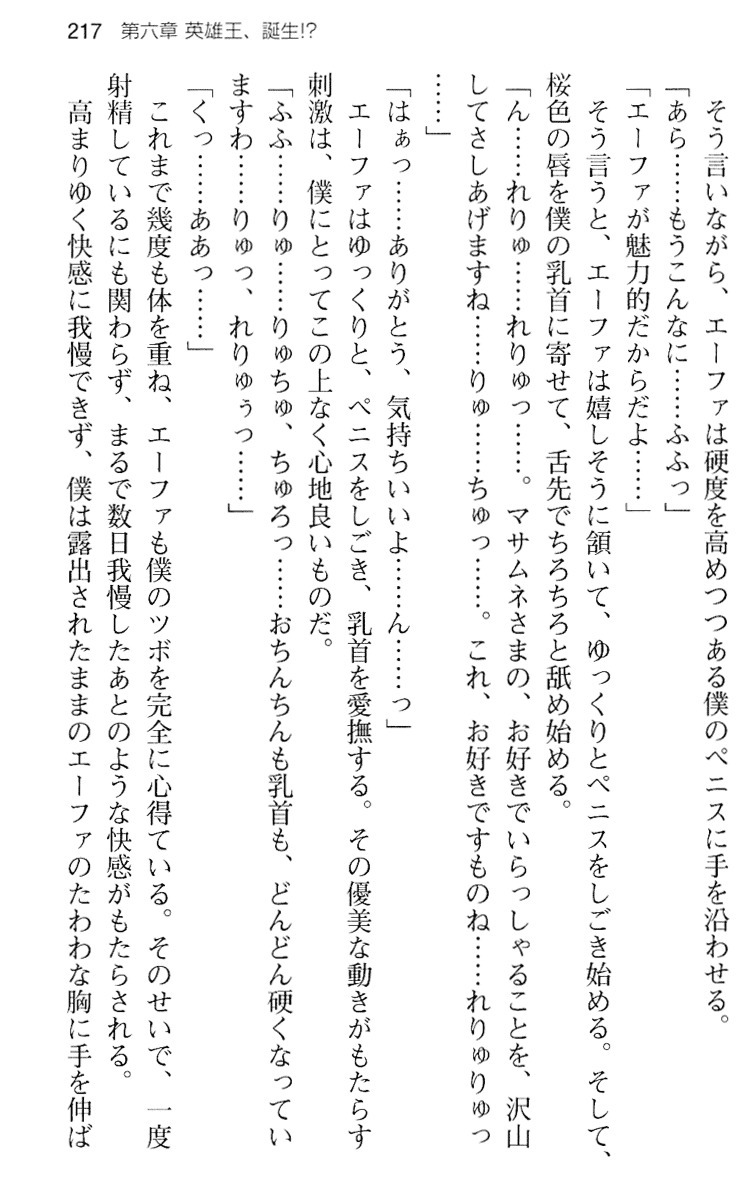 217 第六章 英雄王、誕生!?
そう言いながら、エーファは硬度を高めつつある僕のペニスに手を沿わせる。
「あら……もうこんなに……ふふっ」
「エーファが魅力的だからだよ……」
そう言うと、エーファは嬉しそうに頷いて、ゆっくりとペニスをしごき始める。そして、
桜色の唇を僕の乳首に寄せて、舌先でちろちろと舐め始める。
「ん……れりゅ……れりゅっ……。マサムネさまの、お好きでいらっしゃることを、沢山
してさしあげますね……りゅ……ちゅっ……。これ、お好きですものね……れりゅりゅっ
……」
「はぁっ……ありがとう、気持ちいいよ……ん……っ」
エーファはゆっくりと、ペニスをしごき、乳首を愛撫する。その優美な動きがもたらす
刺激は、僕にとってこの上なく心地良いものだ。
「ふふ……りゅ……りゅちゅ、ちゅろっ……おちんちんも乳首も、どんどん硬くなってい
ますわ……りゅっ、れりゅぅっ……」
「くっ……ああっ……」
これまで幾度も体を重ね、エーファも僕のツボを完全に心得ている。そのせいで、一度
射精しているにも関わらず、まるで数日我慢したあとのような快感がもたらされる。
高まりゆく快感に我慢できず、僕は露出されたままのエーファのたわわな胸に手を伸ば